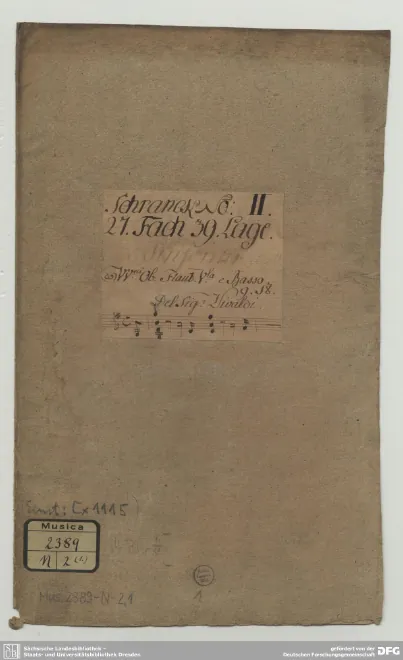 Schranck No: II.
27. Fach 39. Lage.
co VVni Ob. Flaut. Vla e Basso
9. St.
Del Sig: Vivaldi
Cx 1115
Musica
2389
N 2 (1)
Mus. 2389-N-2,1
1
Sächsische Landesbibliothek –
Staats- und Universitätsbibliothek Dresden
gefördert von der
Deutschen Forschungsgemeinschaft DFG